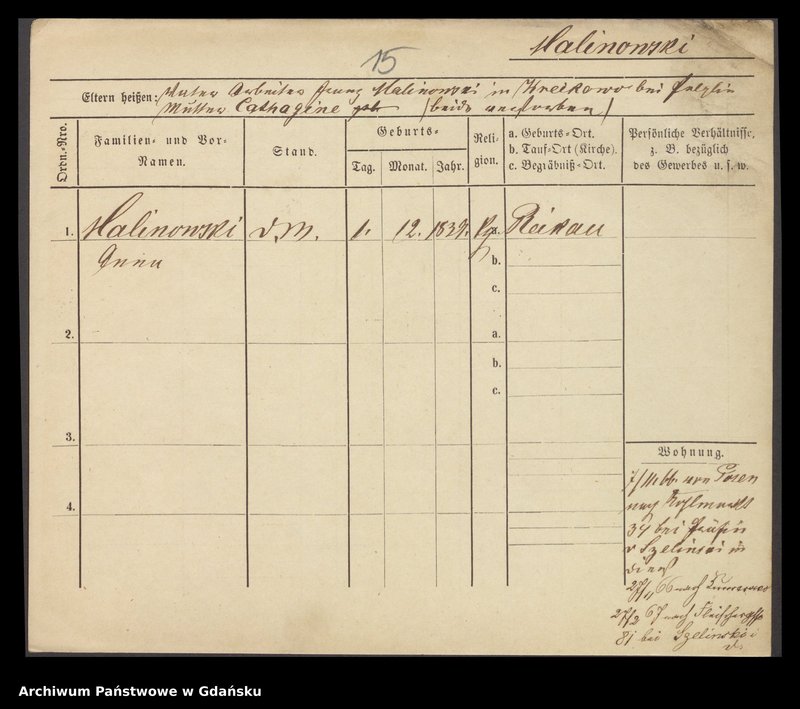 15
Malinowski
Eltern heißen: Vater Arbeiter Franz Malinowski in Kreikowo bei Pelplin
Mutter Cathagine geb. (beide verstorben)
Ordn.-Nro.
Familien- und Vor-Namen.
Stand.
Geburts-
Tag.
Monat.
Jahr.
Religion.
a. Geburts-Ort.
b. Tauf-Ort (Kirche).
c. Begräbniß-Ort.
Persönliche Verhältnisse,
z. B. bezüglich
des Gewerbes u. s. w.
1. Malinowski D.M. 1. 12. 1839. a. Raikau
Anna
b.
c.
2. a.
b.
c.
3.
4.
Wohnung.
von Posen
nach Kohlmarkt
34 bei
v Szelinski in
Dienst
66 nach
27/2 67 nach Fleischerg
81 bei Szelinski i
D.
Archiwum Państwowe w Gdańsku